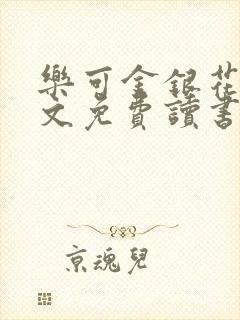 樂可金銀花
文免費讀書
京魂兒